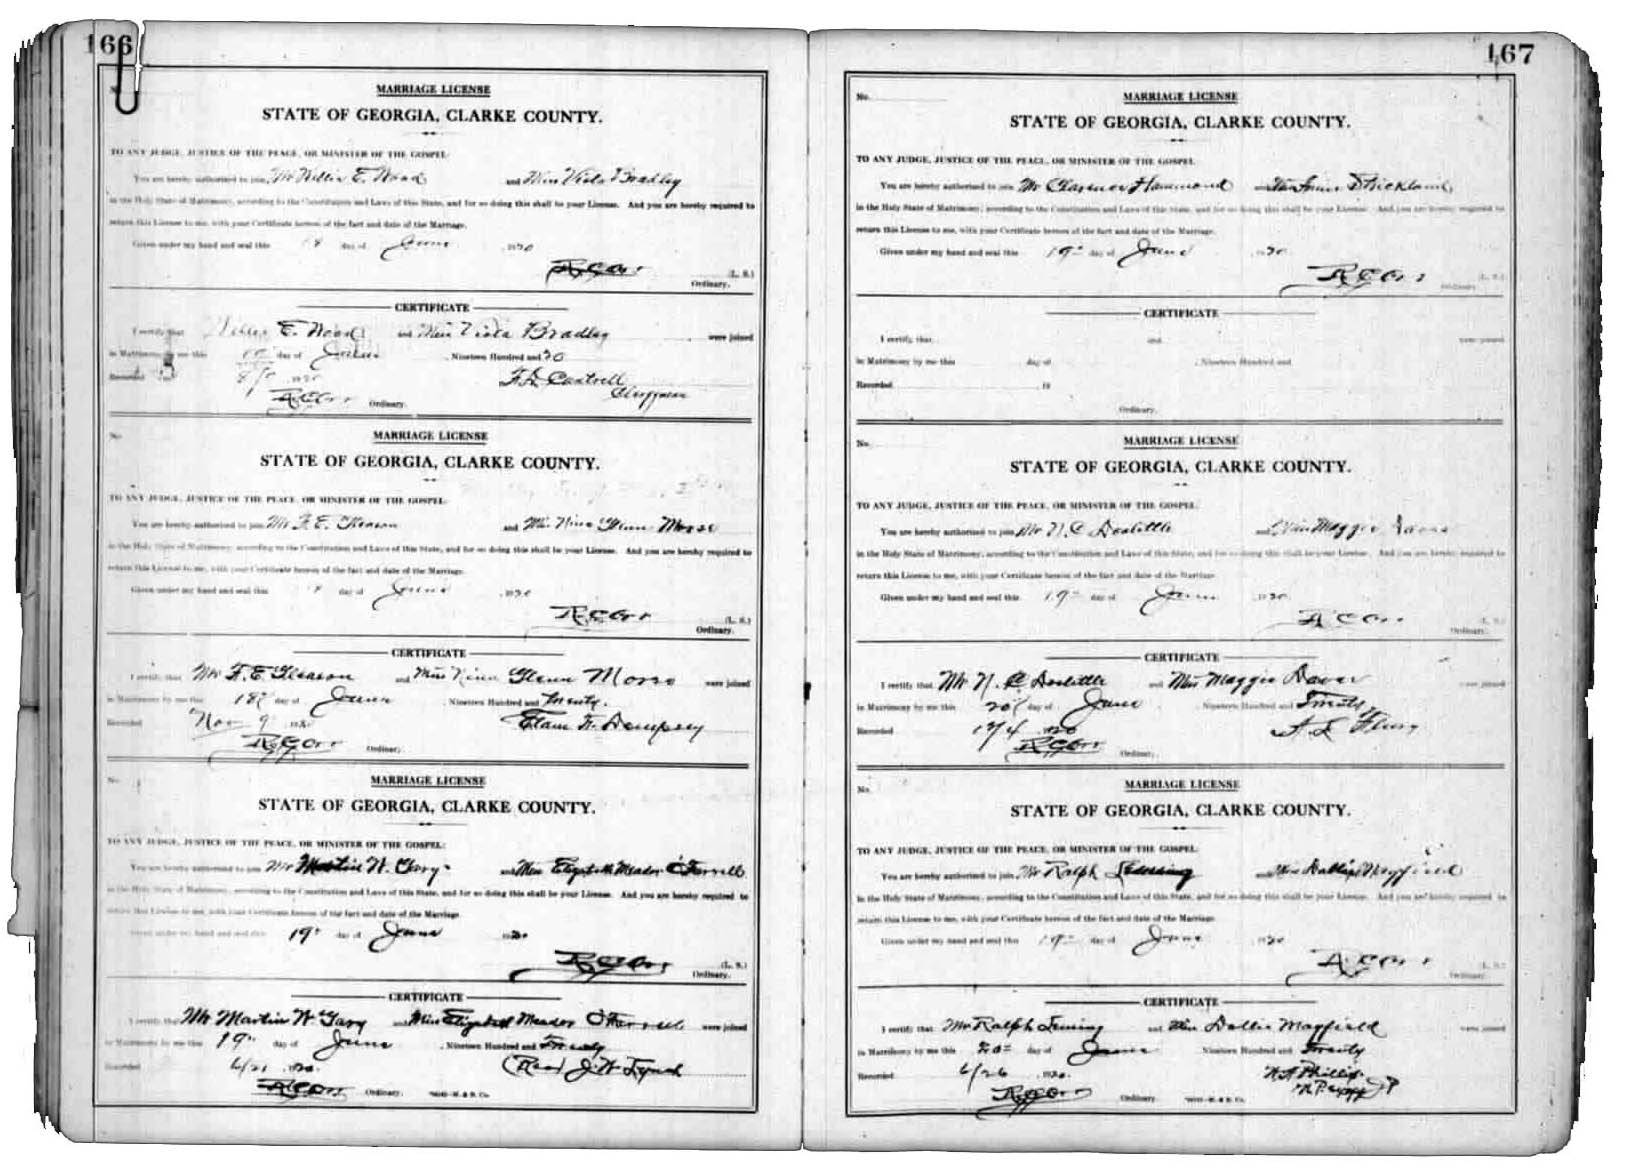 166
No.
MARRIAGE LICENSE
STATE OF GEORGIA, CLARKE COUNTY.
TO ANY JUDGE, JUSTICE OF THE PEACE, OR MINISTER OF THE GOSPEL:
You are hereby authorized to join Mr Willie E. Wood and Miss Viola Bradley
in the Holy State of Matrimony, according to the Constitution and Laws of this State, and for so doing this shall be your License. And you are hereby required to
return this License to me, with your Certificate hereon of the fact and date of the Marriage.
Given under my hand and seal this 18 day of June 1920
R C Orr (L. S.)
Ordinary.
CERTIFICATE
I certify that Willie E. Wood and Miss Viola Bradley were joined
in Matrimony by me this day of June, Nineteen Hundred and 20
Recorded 1920 Cantrell
R C Orr Ordinary. Clergyman
No.
MARRIAGE LICENSE
STATE OF GEORGIA, CLARKE COUNTY.
TO ANY JUDGE, JUSTICE OF THE PEACE, OR MINISTER OF THE GOSPEL:
You are hereby authorized to join Mr F. E. Gleason and Miss Nina Glenn Morse
in the Holy State of Matrimony, according to the Constitution and Laws of this State, and for so doing this shall be your License. And you are hereby required to
return this License to me, with your Certificate hereon of the fact and date of the Marriage.
Given under my hand and seal this day of June 1920
R C Orr (L. S.)
Ordinary.
CERTIFICATE
I certify that Mr F. E. Gleason and Miss Nina Glenn Morse were joined
in Matrimony by me this 18th day of June, Nineteen Hundred and Twenty.
Recorded Nov 9 1920 Elam F. Dempsey
R C Orr Ordinary.
No.
MARRIAGE LICENSE
STATE OF GEORGIA, CLARKE COUNTY.
TO ANY JUDGE, JUSTICE OF THE PEACE, OR MINISTER OF THE GOSPEL:
You are hereby authorized to join Mr Martin W. Gary and Miss Elizabeth Meador O'Farrell
in the Holy State of Matrimony, according to the Constitution and Laws of this State, and for so doing this shall be your License. And you are hereby required to
return this License to me, with your Certificate hereon of the fact and date of the Marriage.
Given under my hand and seal this 19 day of June 1920
R C Orr (L. S.)
Ordinary.
CERTIFICATE
I certify that Mr Martin W Gary and Miss Elizabeth Meador O'Farrell were joined
in Matrimony by me this 19 day of June, Nineteen Hundred and Twenty
Recorded 6/21 1920 (Rev) J. W. Lynch
R C Orr Ordinary.
167
No.
MARRIAGE LICENSE
STATE OF GEORGIA, CLARKE COUNTY.
TO ANY JUDGE, JUSTICE OF THE PEACE, OR MINISTER OF THE GOSPEL
You are hereby authorized to join Mr Clarence Hammond and Strickland
in the Holy State of Matrimony, according to the Constitution and Laws of this State, and for so doing this shall be your License. And you are hereby required to
return this License to me, with your Certificate hereon of the fact and date of the Marriage.
Given under my hand and seal this 19 day of June 1920
R C Orr (L. S.)
Ordinary.
CERTIFICATE
I certify that and were joined
in Matrimony by me this day of , Nineteen Hundred and
Recorded 19
Ordinary.
No.
MARRIAGE LICENSE
STATE OF GEORGIA, CLARKE COUNTY.
TO ANY JUDGE, JUSTICE OF THE PEACE, OR MINISTER OF THE GOSPEL
You are hereby authorized to join Mr N. C Doolittle and Miss Maggie
in the Holy State of Matrimony, according to the Constitution and Laws of this State, and for so doing this shall be your License. And you are hereby required to
return this License to me, with your Certificate hereon of the fact and date of the Marriage.
Given under my hand and seal this 19 day of June 1920
R C Orr (L. S.)
Ordinary.
CERTIFICATE
I certify that Mr N. C Doolittle and Miss Maggie were joined
in Matrimony by me this 20 day of June, Nineteen Hundred and Twenty
Recorded 1920
R C Orr Ordinary.
No.
MARRIAGE LICENSE
STATE OF GEORGIA, CLARKE COUNTY.
TO ANY JUDGE, JUSTICE OF THE PEACE, OR MINISTER OF THE GOSPEL
You are hereby authorized to join Mr Ralph and Miss Dollie Mayfield
in the Holy State of Matrimony, according to the Constitution and Laws of this State, and for so doing this shall be your License. And you are hereby required to
return this License to me, with your Certificate hereon of the fact and date of the Marriage.
Given under my hand and seal this 19 day of June 1920
R C Orr (L. S.)
Ordinary.
CERTIFICATE
I certify that Mr Ralph and Miss Dollie Mayfield were joined
in Matrimony by me this 20 day of June Nineteen Hundred and Twenty
Recorded 6/26 1920. Phillips
R C Orr Ordinary.